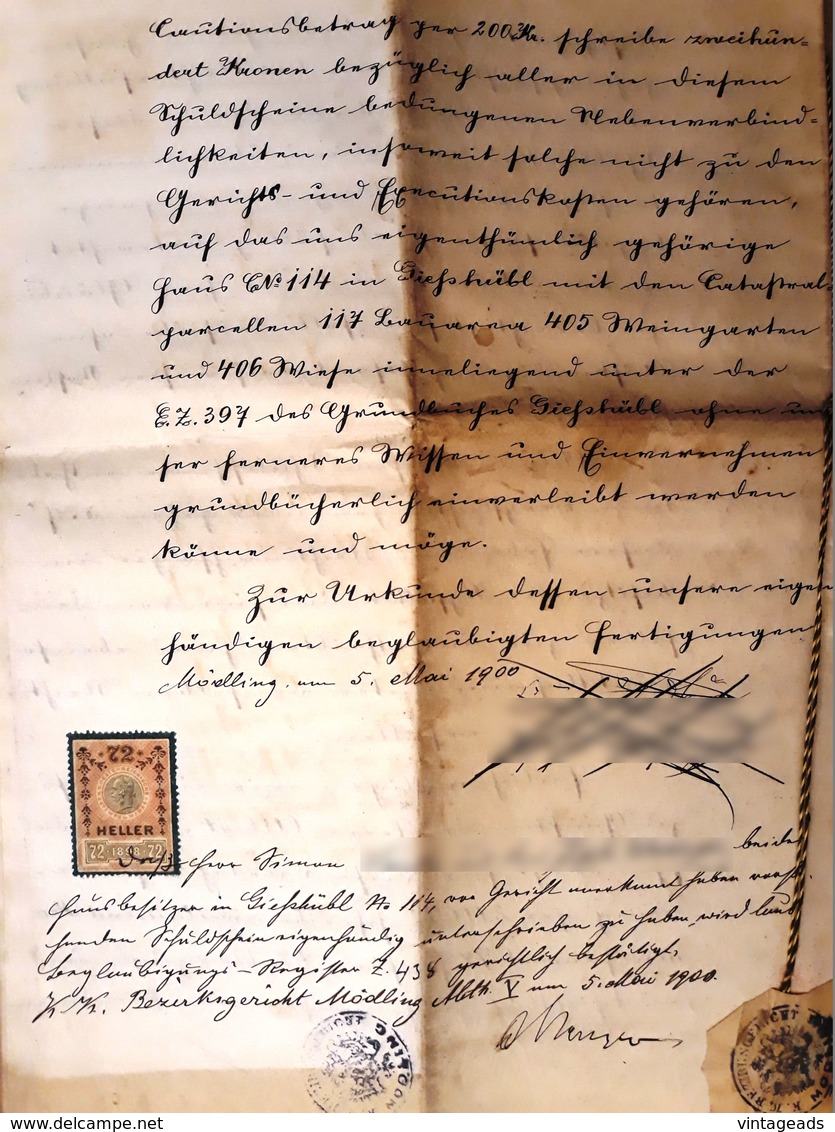 Cautionsbetrag per 200 Kr. schreibe zweihun=
dert Kronen bezüglich aller in diesem
Schuldscheine bedungenen Nebenverbind=
lichkeiten, insoweit solche nicht zu den
Gerichts- und Executionskosten gehören,
auf das uns eigenthümlich gehörige
Haus CNo 114 in Gießhübl mit den Catastral=
parcellen 117 Bauarea 405 Weingarten
und 406 Wiese inneliegend unter der
E.Z. 397 des Grundbuches Gießhübl ohne un
ser ferneres Wissen und Einvernehmen
grundbücherlich einverleibt werden
könne und möge.
Zur Urkunde dessen unsere eigen
händigen beglaubigten Fertigungen
Mödling, am 5. Mai 1900
72
HELLER
72 1898 72
Dass Herr Simon beide
Hausbesitzer in Gießhübl No 114, vor Gericht anerkannt haben vorst.
henden Schuldschein eigenhändig unterschrieben zu haben, wird laut
Beglaubigungs-Register Z. 438 gerichtlich bestätigt.
K.K. Bezirksgericht Mödling Abth. V am 5. Mai 1900.
K.K. BEZIRKSGERICHT MÖDLING
K.K. BEZIRKSGERICHT MÖDLING
www.delcampe.net
vintageads